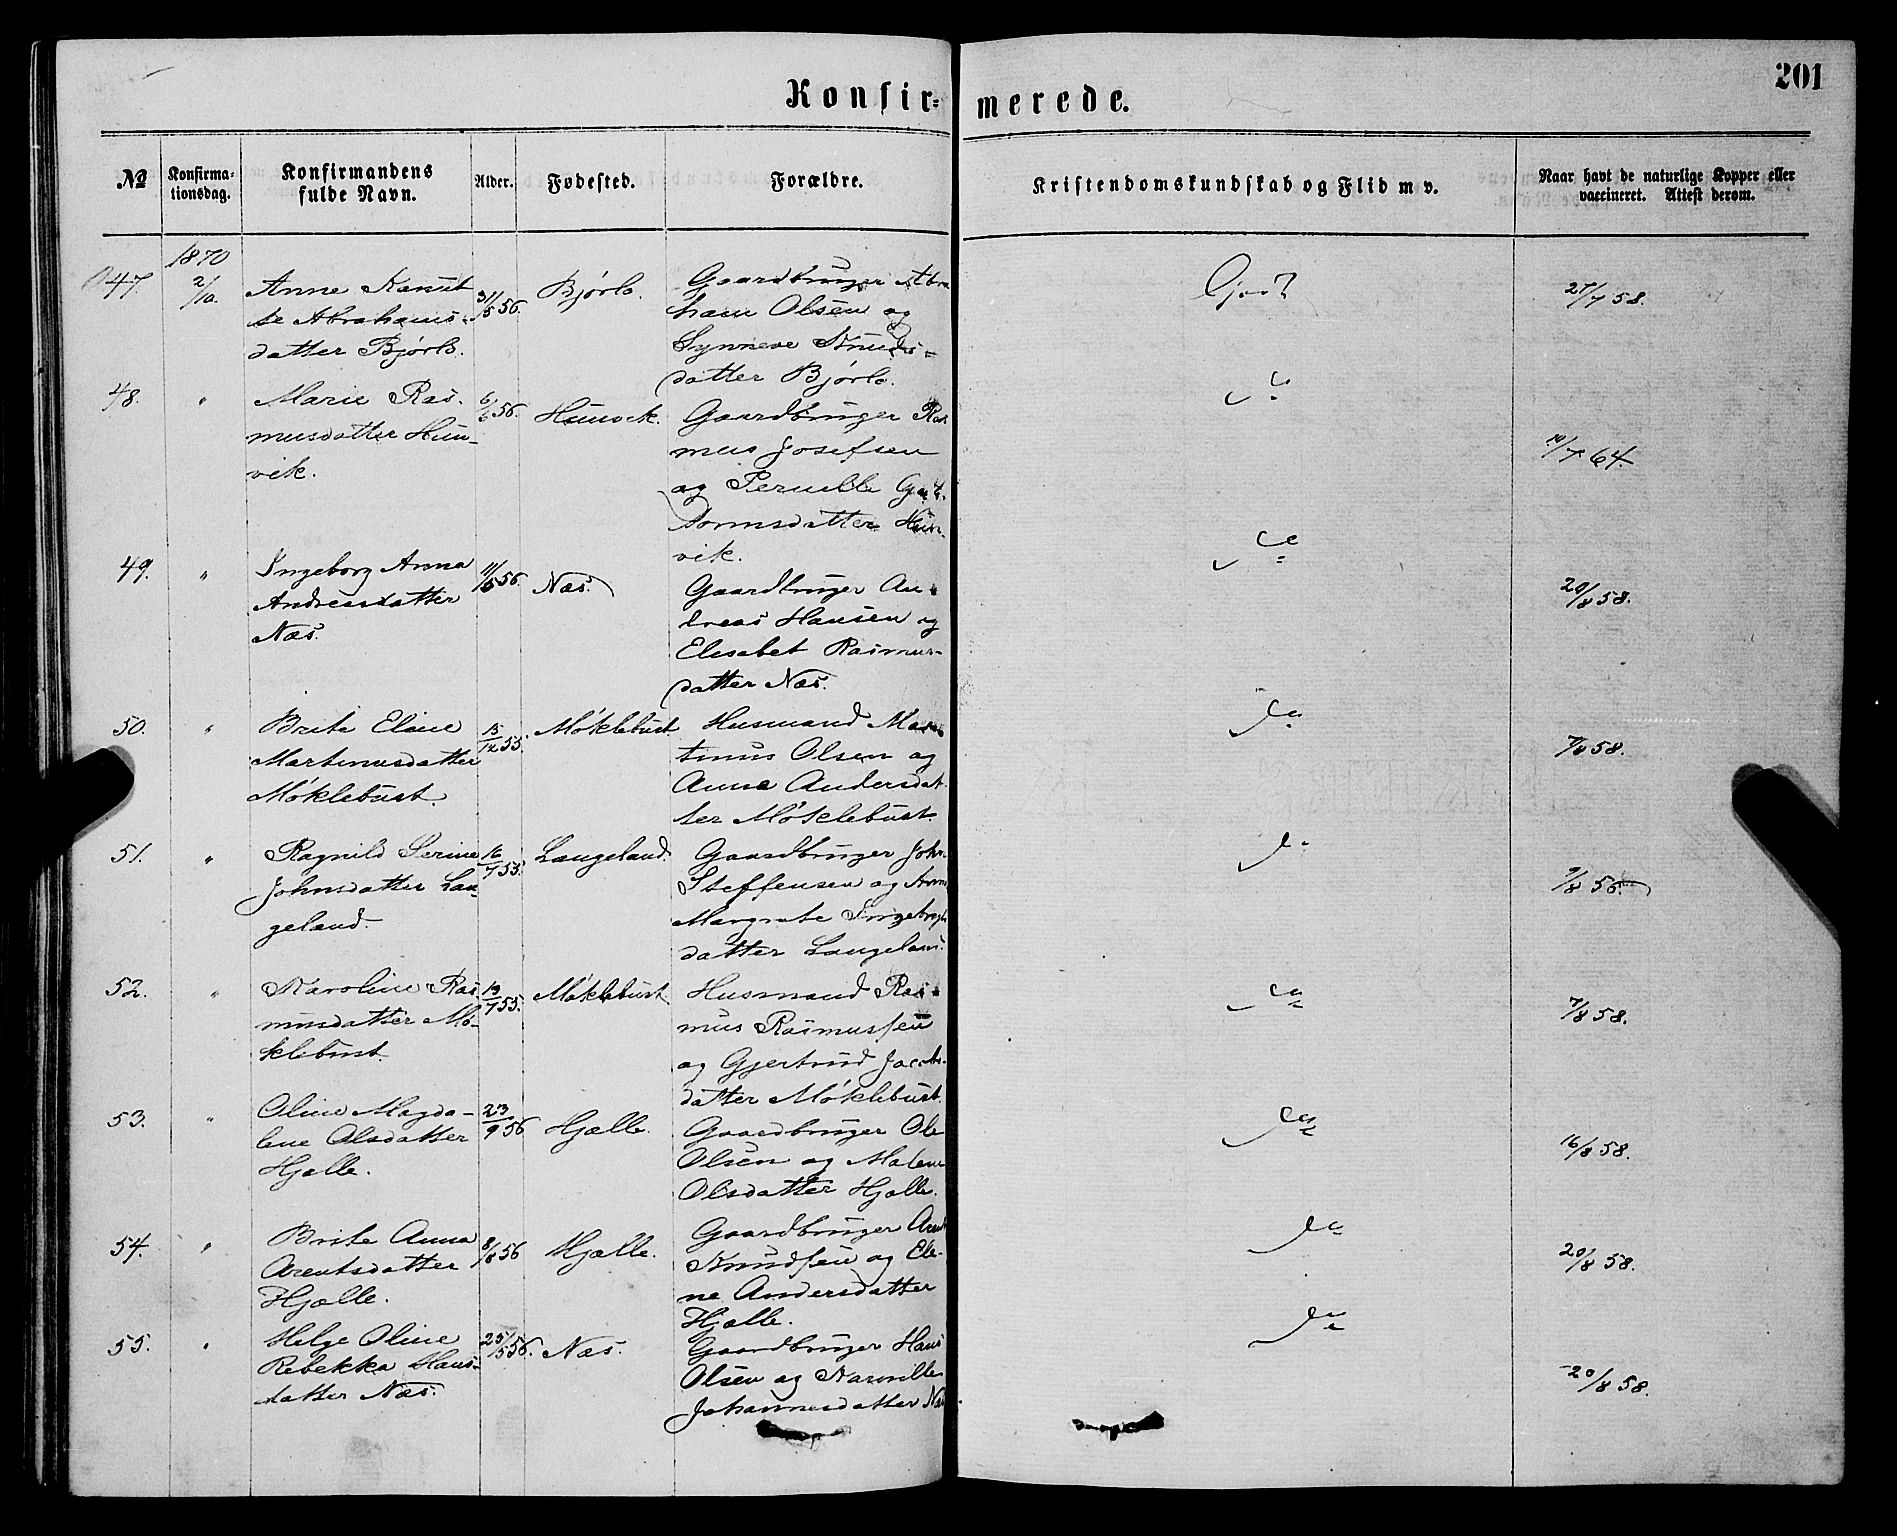 Konfir=
merede.
201
No
Konfirma-
tionsdag.
Konfirmandens
fulde Navn.
Alder.
Fødested.
Forældre.
Kristendomskundskab og Flid m v.
Naar havt de naturlige Kopper eller
vaccineret. Attest derom.
1870
47.
2/10.
Anne Knut
se Abrahams-
datter Bjørlo.
31/5 56.
Bjørlo.
Gaardbruger Abra
ham Olsen og
Synneve Knuds=
datter Bjørlo.
Godt
27/7 58.
48.
"
Marie Ras-
musdatter Hun-
vik.
6/6 56.
Hunvik.
Gaardbruger Ras
mus Josefsen
og Pernelle Gut-
tormsdatter Hun-
vik.
10/7 64.
49.
"
Ingeborg Anna
Andreasdatter
Næs.
11/6 56.
Næs.
Gaardbruger An-
dreas Hansen og
Elesabet Rasmus-
datter Næs.
20/8 58.
50.
"
Brite Eline
Martinusdatter
Møklebust.
15/12 55.
Møklebust.
Husmand Mar-
tinus Olsen og
Anna Andersdat
ter Møklebust.
7/8 58.
51.
"
Ragnild Serine
Johnsdatter Lan-
geland.
16/7 55.
Langeland.
Gaardbruger John
Steffensen og Anne
Margrete Ingebrigts
datter Langeland.
9/8 56.
52.
"
Karoline Ras
musdatter Mø-
klebust.
13/7 55.
Møklebust.
Husmand Ras-
mus Rasmussen
og Gjertrud Jacobs-
datter Møklebust.
7/8 58.
53.
"
Oline Magda-
lene Olsdatter
Hjelle.
23/9 56
Hjelle.
Gaardbruger Ole
Olsen og Malene
Olsdatter Hjelle.
16/8 58.
54.
"
Brite Anna
Arentsdatter
Hjelle.
8/8 56
Hjelle.
Gaardbruger Arent
Knudsen og Ele-
ne Andersdatter
Hjelle.
20/8 58.
55.
"
Helge Oline
Rebekka Hans-
datter Næs.
25/5 56.
Næs.
Gaardbruger Hans
Olsen og Karnille
Johannesdatter Næs
20/8 58.